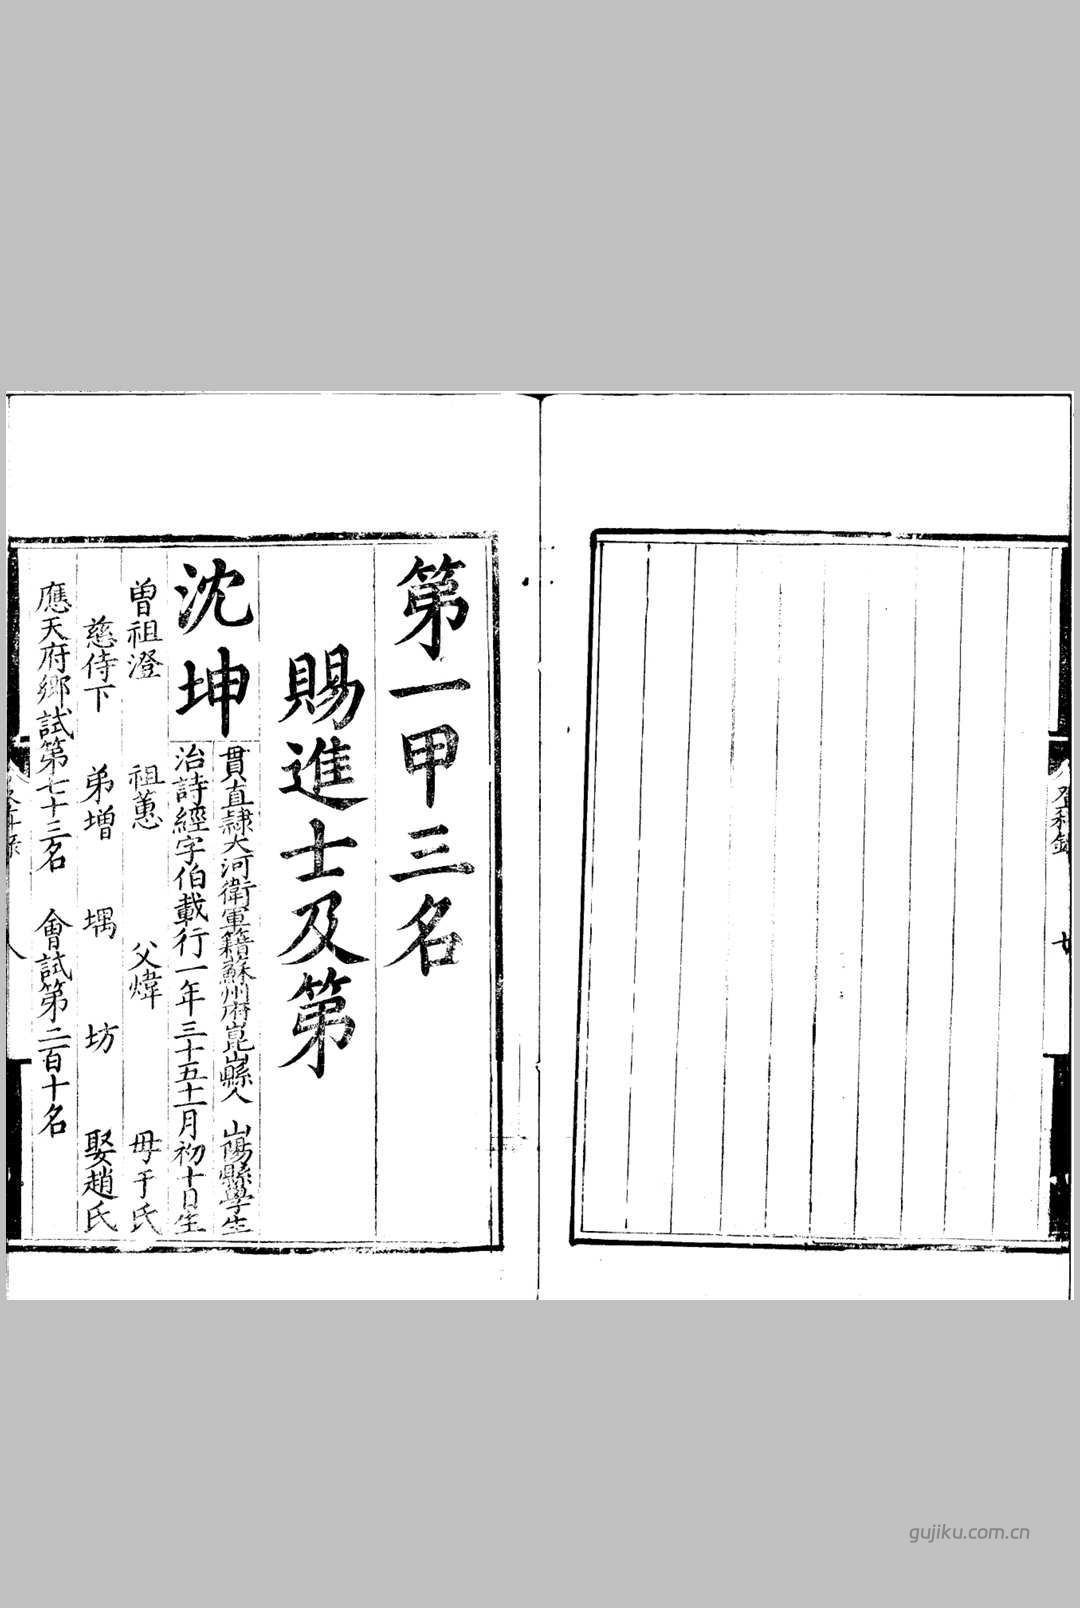 登科錄
第一甲三名
賜進士及第
沈坤
貫直隸大河衛軍籍蘇州府崑山縣人 山陽縣學生
治詩經字伯載行一年三十五十一月初十日生
曾祖澄 祖蕙 父煒 母于氏
慈侍下 弟增 堣 坊 娶趙氏
應天府鄉試第七十三名 會試第二百十名
gujiku.com.cn